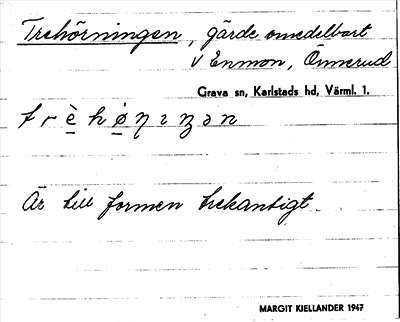 Trehörningen, gärde omedelbart
v Enmon, Önnerud
Grava sn, Karlstads hd, Värml. 1.
Är till formen trekantigt.
MARGIT KJELLANDER 1947